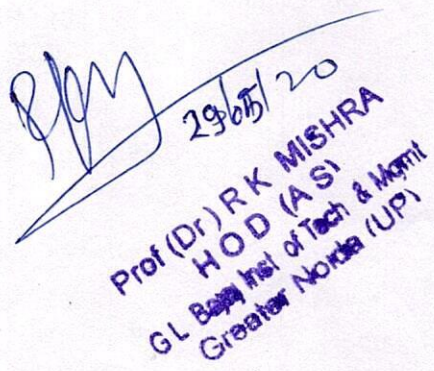 29/05/20
Prof (Dr) R K MISHRA
H O D (A S)
G L Bajaj Inst of Tech & Mgmt
Greater Noida (UP)